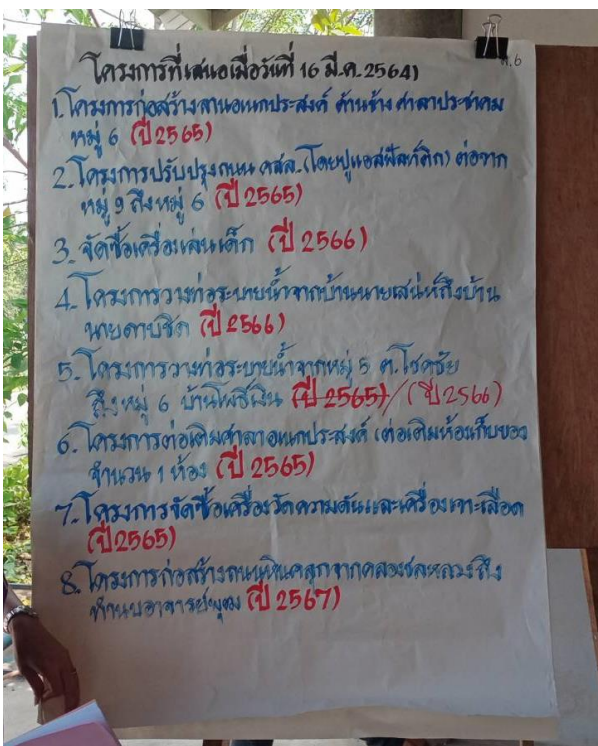 ม.6
โครงการที่เสนอเมื่อวันที่ 16 มี.ค. 2564)
1.โครงการก่อสร้างลานอเนกประสงค์ ด้านข้าง ศาลาประชาคม
หมู่ 6 (ปี 2565)
2.โครงการปรับปรุงถนน คสล.(โดยปูแอสฟัลท์ติก) ต่อจาก
หมู่ 9 ถึงหมู่ 6 (ปี 2565)
3. จัดซื้อเครื่องเล่นเด็ก (ปี 2566)
4. โครงการวางท่อระบายน้ำจากบ้านนายเสน่ห์ถึงบ้าน
นายดาบชิต (ปี 2566)
5. โครงการวางท่อระบายน้ำจากหมู่ 5 ต.โชคชัย
ถึงหมู่ 6 บ้านโพธิ์เงิน (ปี 2565) / (ปี 2566)
6. โครงการต่อเติมศาลาอเนกประสงค์ (ต่อเติมห้องเก็บของ
จำนวน 1 ห้อง (ปี 2565)
7.โครงการจัดซื้อเครื่องวัดความดันและเครื่องเจาะเลือด
(ปี 2565)
8. โครงการก่อสร้างถนนหินคลุกจากคลองชลหลวงถึง
ทำนบอาจารย์ (ปี 2567)